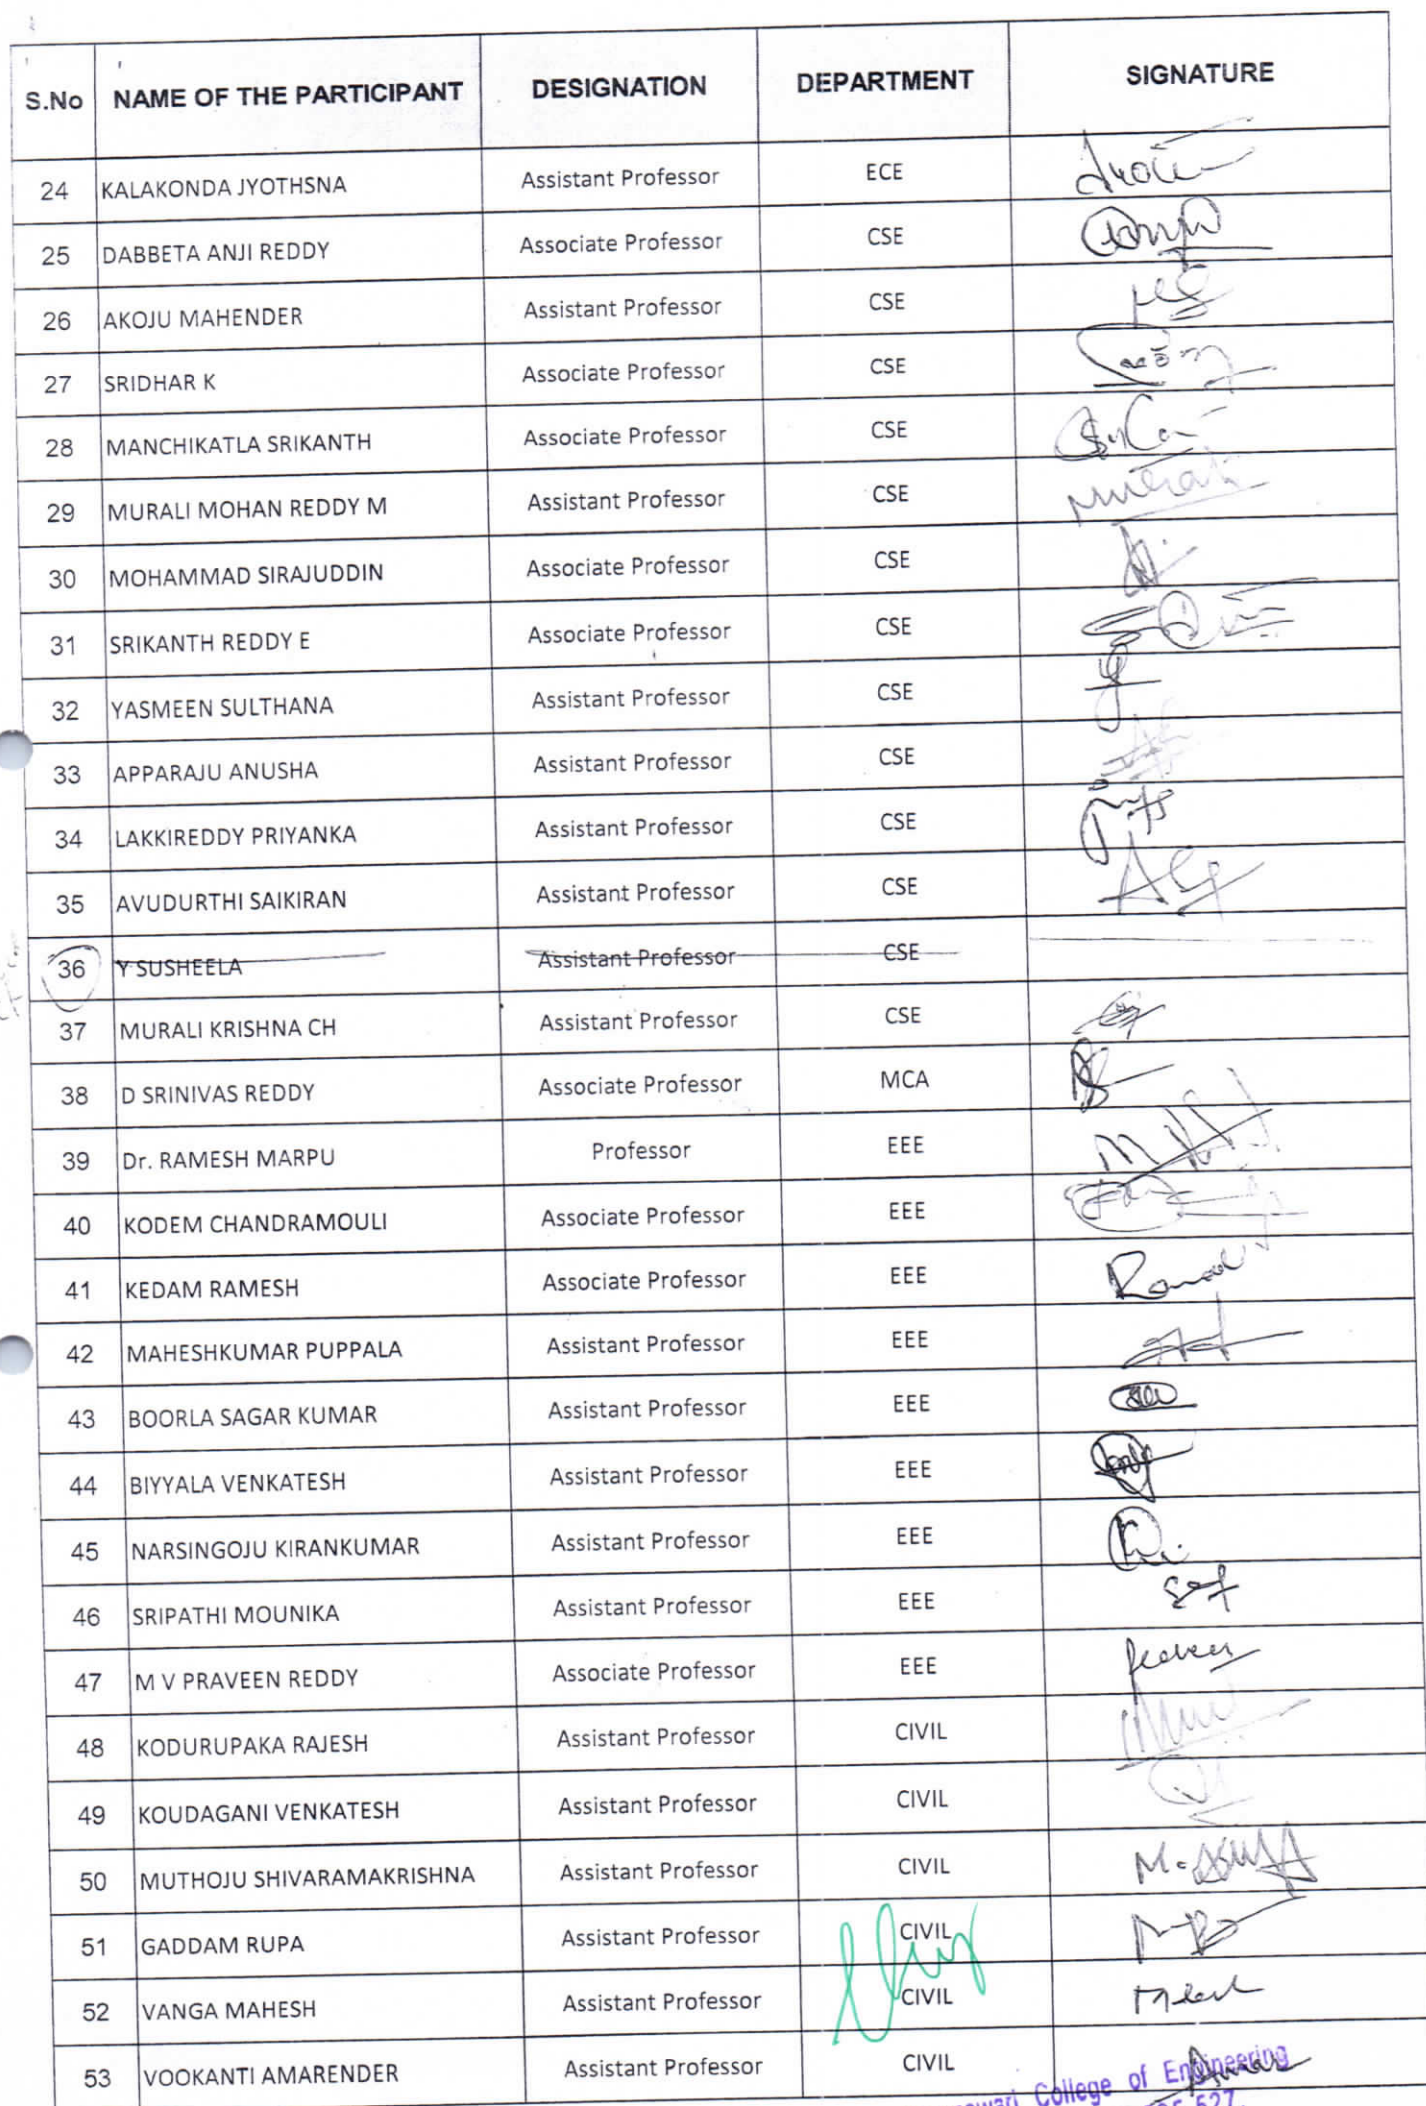 S.No NAME OF THE PARTICIPANT DESIGNATION DEPARTMENT SIGNATURE
24 KALAKONDA JYOTHSNA Assistant Professor ECE
25 DABBETA ANJI REDDY Associate Professor CSE
26 AKOJU MAHENDER Assistant Professor CSE
27 SRIDHAR K Associate Professor CSE
28 MANCHIKATLA SRIKANTH Associate Professor CSE
29 MURALI MOHAN REDDY M Assistant Professor CSE
30 MOHAMMAD SIRAJUDDIN Associate Professor CSE
31 SRIKANTH REDDY E Associate Professor CSE
32 YASMEEN SULTHANA Assistant Professor CSE
33 APPARAJU ANUSHA Assistant Professor CSE
34 LAKKIREDDY PRIYANKA Assistant Professor CSE
35 AVUDURTHI SAIKIRAN Assistant Professor CSE
36 Y SUSHEELA Assistant Professor CSE
37 MURALI KRISHNA CH Assistant Professor CSE
38 D SRINIVAS REDDY Associate Professor MCA
39 Dr. RAMESH MARPU Professor EEE
40 KODEM CHANDRAMOULI Associate Professor EEE
41 KEDAM RAMESH Associate Professor EEE
42 MAHESHKUMAR PUPPALA Assistant Professor EEE
43 BOORLA SAGAR KUMAR Assistant Professor EEE
44 BIYYALA VENKATESH Assistant Professor EEE
45 NARSINGOJU KIRANKUMAR Assistant Professor EEE
46 SRIPATHI MOUNIKA Assistant Professor EEE
47 M V PRAVEEN REDDY Associate Professor EEE
48 KODURUPAKA RAJESH Assistant Professor CIVIL
49 KOUDAGANI VENKATESH Assistant Professor CIVIL
50 MUTHOJU SHIVARAMAKRISHNA Assistant Professor CIVIL
51 GADDAM RUPA Assistant Professor CIVIL
52 VANGA MAHESH Assistant Professor CIVIL
53 VOOKANTI AMARENDER Assistant Professor CIVIL
College of Engineering